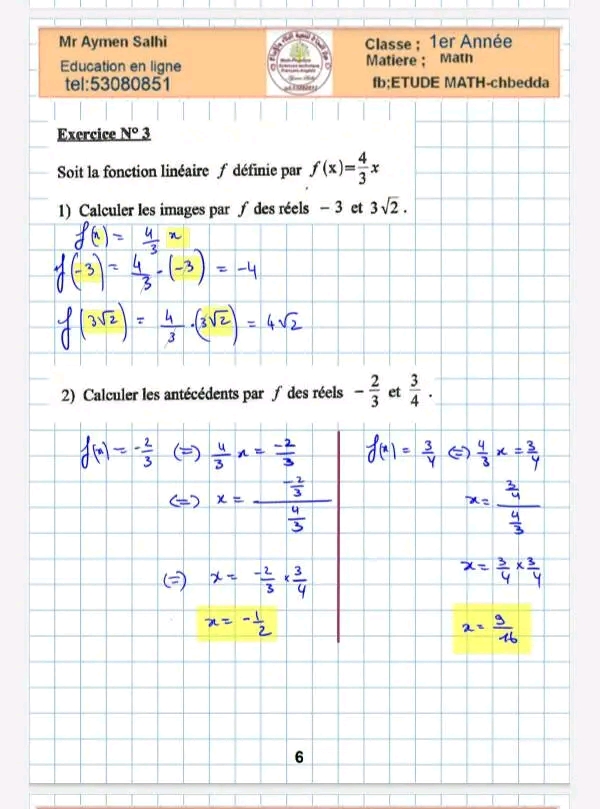 Mr Aymen Salhi
Education en ligne
tel:53080851
Classe ; 1er Année
Matiere ; Math
fb;ETUDE MATH-chbedda
Exercice N° 3
Soit la fonction linéaire f définie par f(x)=4/3 x
1) Calculer les images par f des réels − 3 et 3√2 .
f(x) = 4/3 x
f(-3) = 4/3 . (-3) = -4
f(3√2) = 4/3 .(3√2) = 4√2
2) Calculer les antécédents par f des réels − 2/3 et 3/4 .
f(x) = -2/3 (=) 4/3 x = -2/3
(=) x = (-2/3)/(4/3)
(=) x = -2/3 × 3/4
x = -1/2
f(x) = 3/4 (=) 4/3 x = 3/4
x = (3/4)/(4/3)
x = 3/4 × 3/4
x = 9/16
6